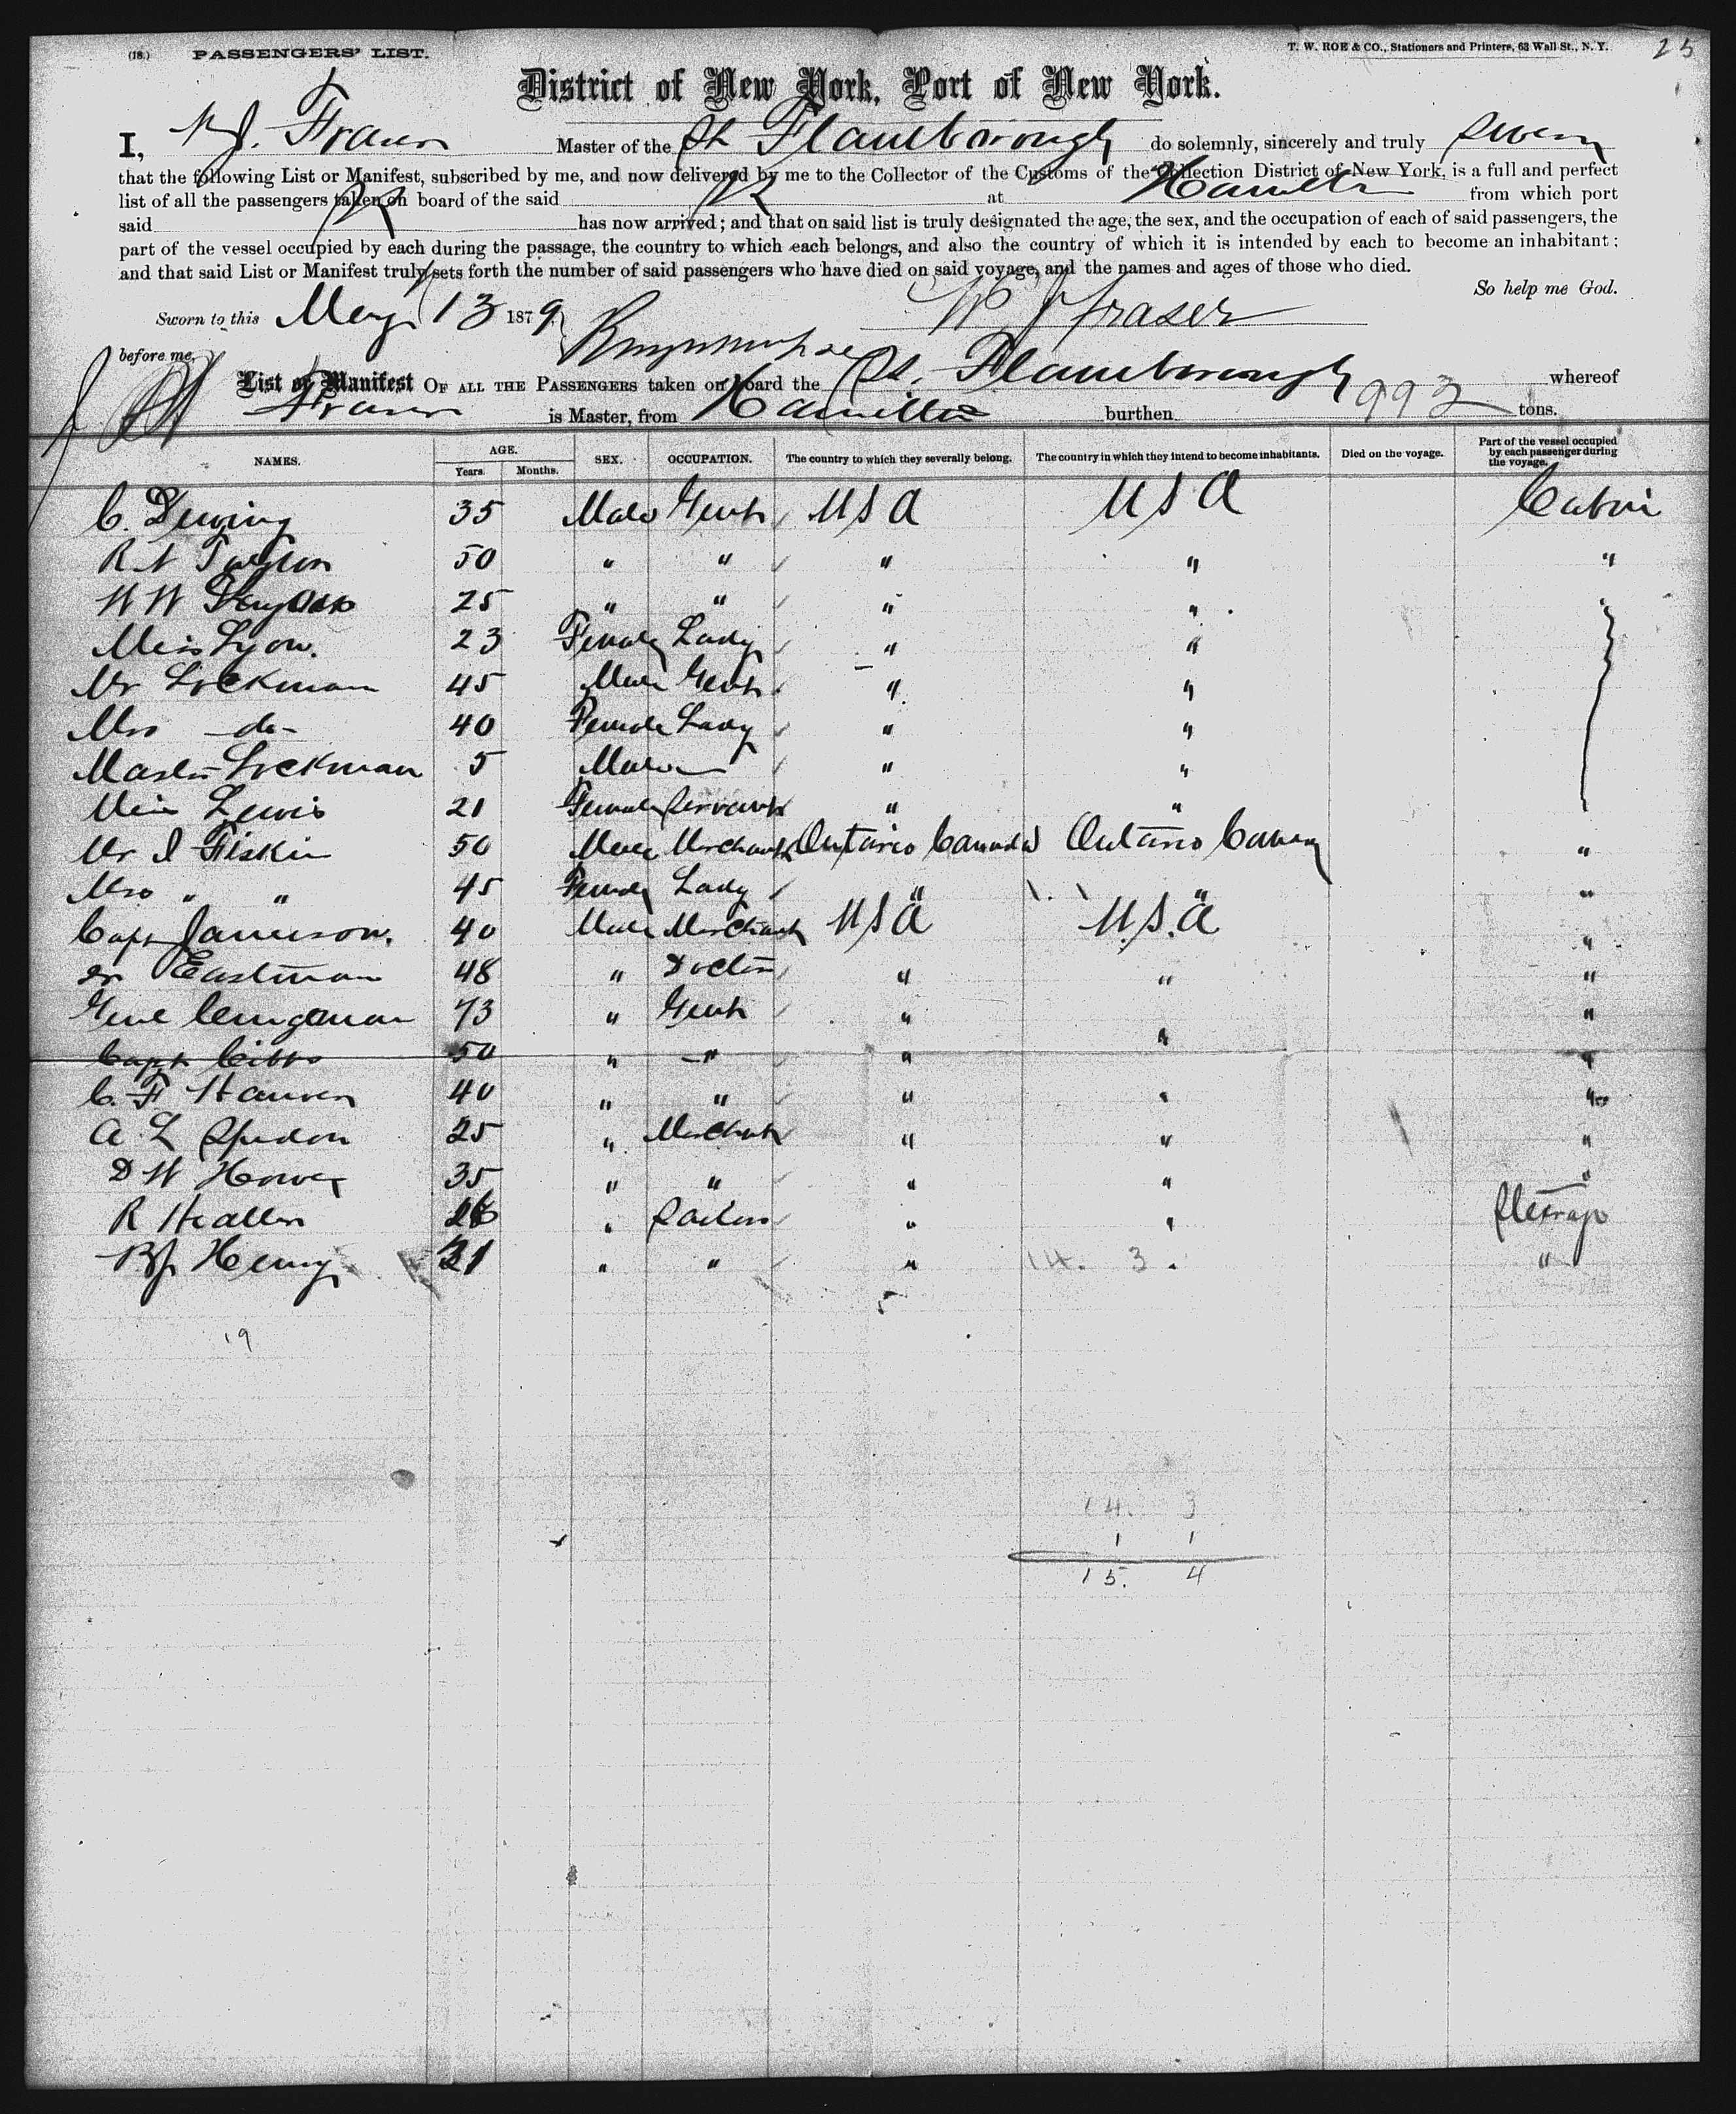 (18.) PASSENGERS' LIST. T. W. ROE & CO., Stationers and Printers, 63 Wall St., N. Y. 25
District of New York, Port of New York.
I, W J. Fraser Master of the SS Flamborough do solemnly, sincerely and truly swear
that the following List or Manifest, subscribed by me, and now delivered by me to the Collector of the Customs of the Collection District of New York, is a full and perfect
list of all the passengers taken on board of the said at Hamilton from which port
said has now arrived; and that on said list is truly designated the age, the sex, and the occupation of each of said passengers, the
part of the vessel occupied by each during the passage, the country to which each belongs, and also the country of which it is intended by each to become an inhabitant;
and that said List or Manifest truly sets forth the number of said passengers who have died on said voyage, and the names and ages of those who died.
So help me God.
Sworn to this May 13 1879 W J Fraser
before me,
List or Manifest OF ALL THE PASSENGERS taken on board the SS. Flamborough whereof
Fraser is Master, from Hamilton burthen 993 tons.
NAMES. AGE. Years. Months. SEX. OCCUPATION. The country to which they severally belong. The country in which they intend to become inhabitants. Died on the voyage. Part of the vessel occupied by each passenger during the voyage.
C. Dewing 35 Male Gent USA USA Cabin
R N Taylor 50 " " " " "
W W 25 " " " "
Miss Lyon. 23 Female Lady " "
Mr Lockman 45 Male Gent " "
Mrs -do- 40 Female Lady " "
Master Lockman 5 Male — " "
Miss Lewis 21 Female Servant " "
Mr J Fiskin 50 Male Merchant Ontario Canada Ontario Canada "
Mrs " " 45 Female Lady " " "
Capt Jamieson. 40 Male Merchant USA U.S.A "
Dr Eastman 48 " Doctor " " "
Genl 73 " Gent " " "
Capt Gibbs 50 " " " " "
C. F Hansen 40 " " " " "
A. L 25 " Merchant " " "
D W Hower 35 " " " " "
R " Sailor " " Steerage
Henry 21 " " " 14. 3. "
5
19
14. 3
1 1
15. 4